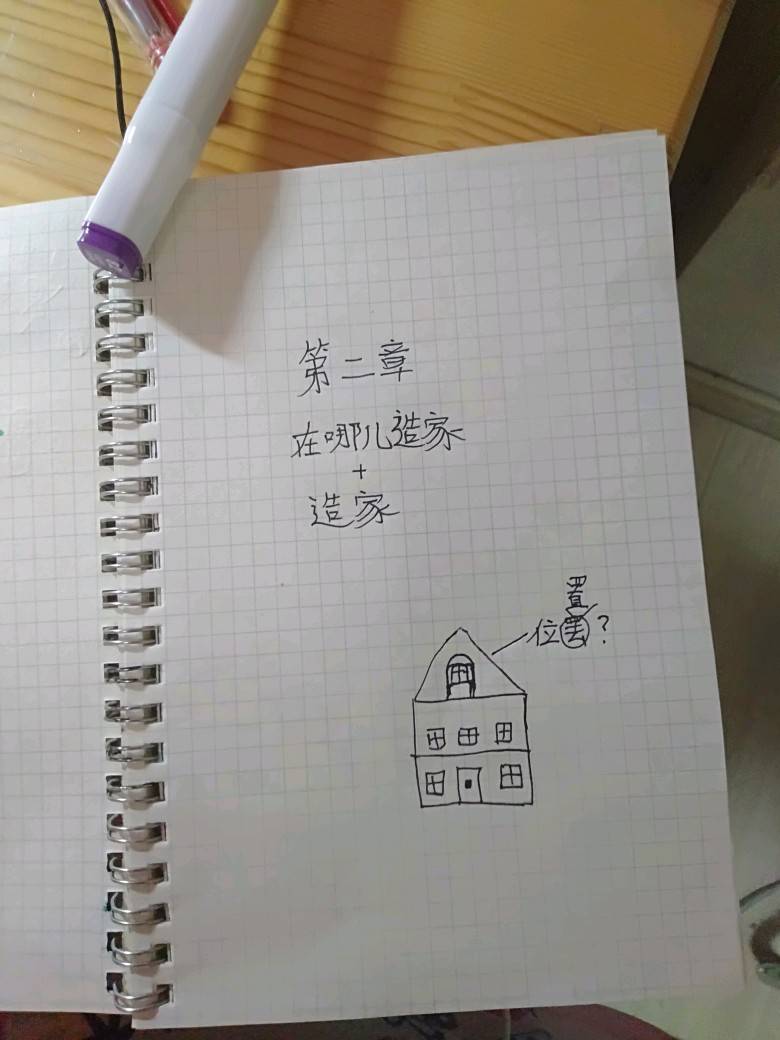 第二章
在哪儿造家
+
造家
置
位罢?